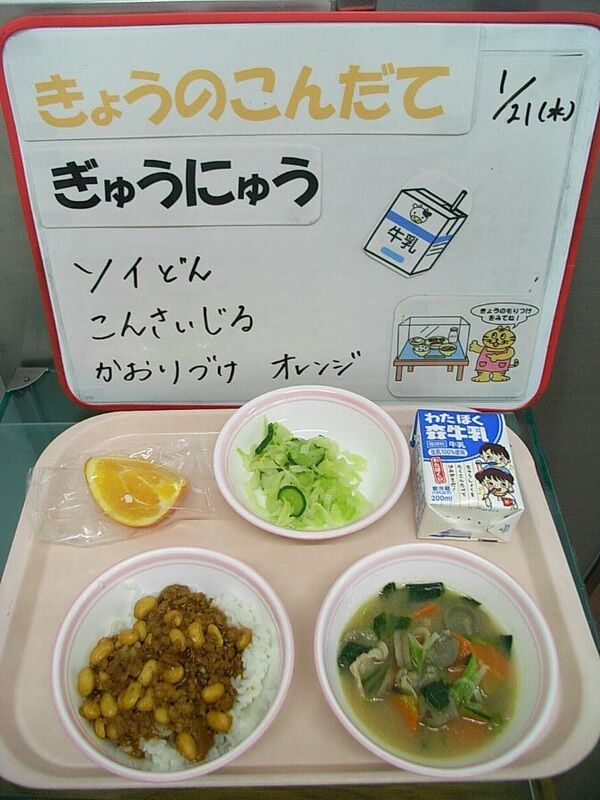 きょうのこんだて
1/21(水)
ぎゅうにゅう
牛乳
ソイどん
こんさいじる
かおりづけ オレンジ
きょうのもりつけ
をみてね!
わたぼく
森牛乳
種類別 牛乳
生乳100%使用
200ml